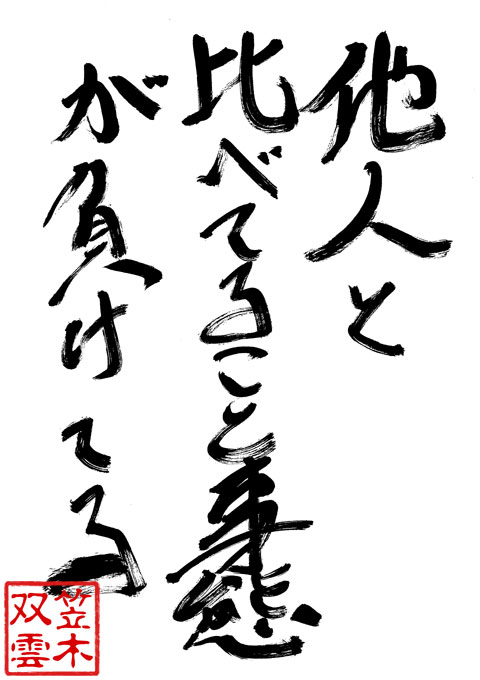 他人と
比べてること事態
が負けてる
笠木
双雲